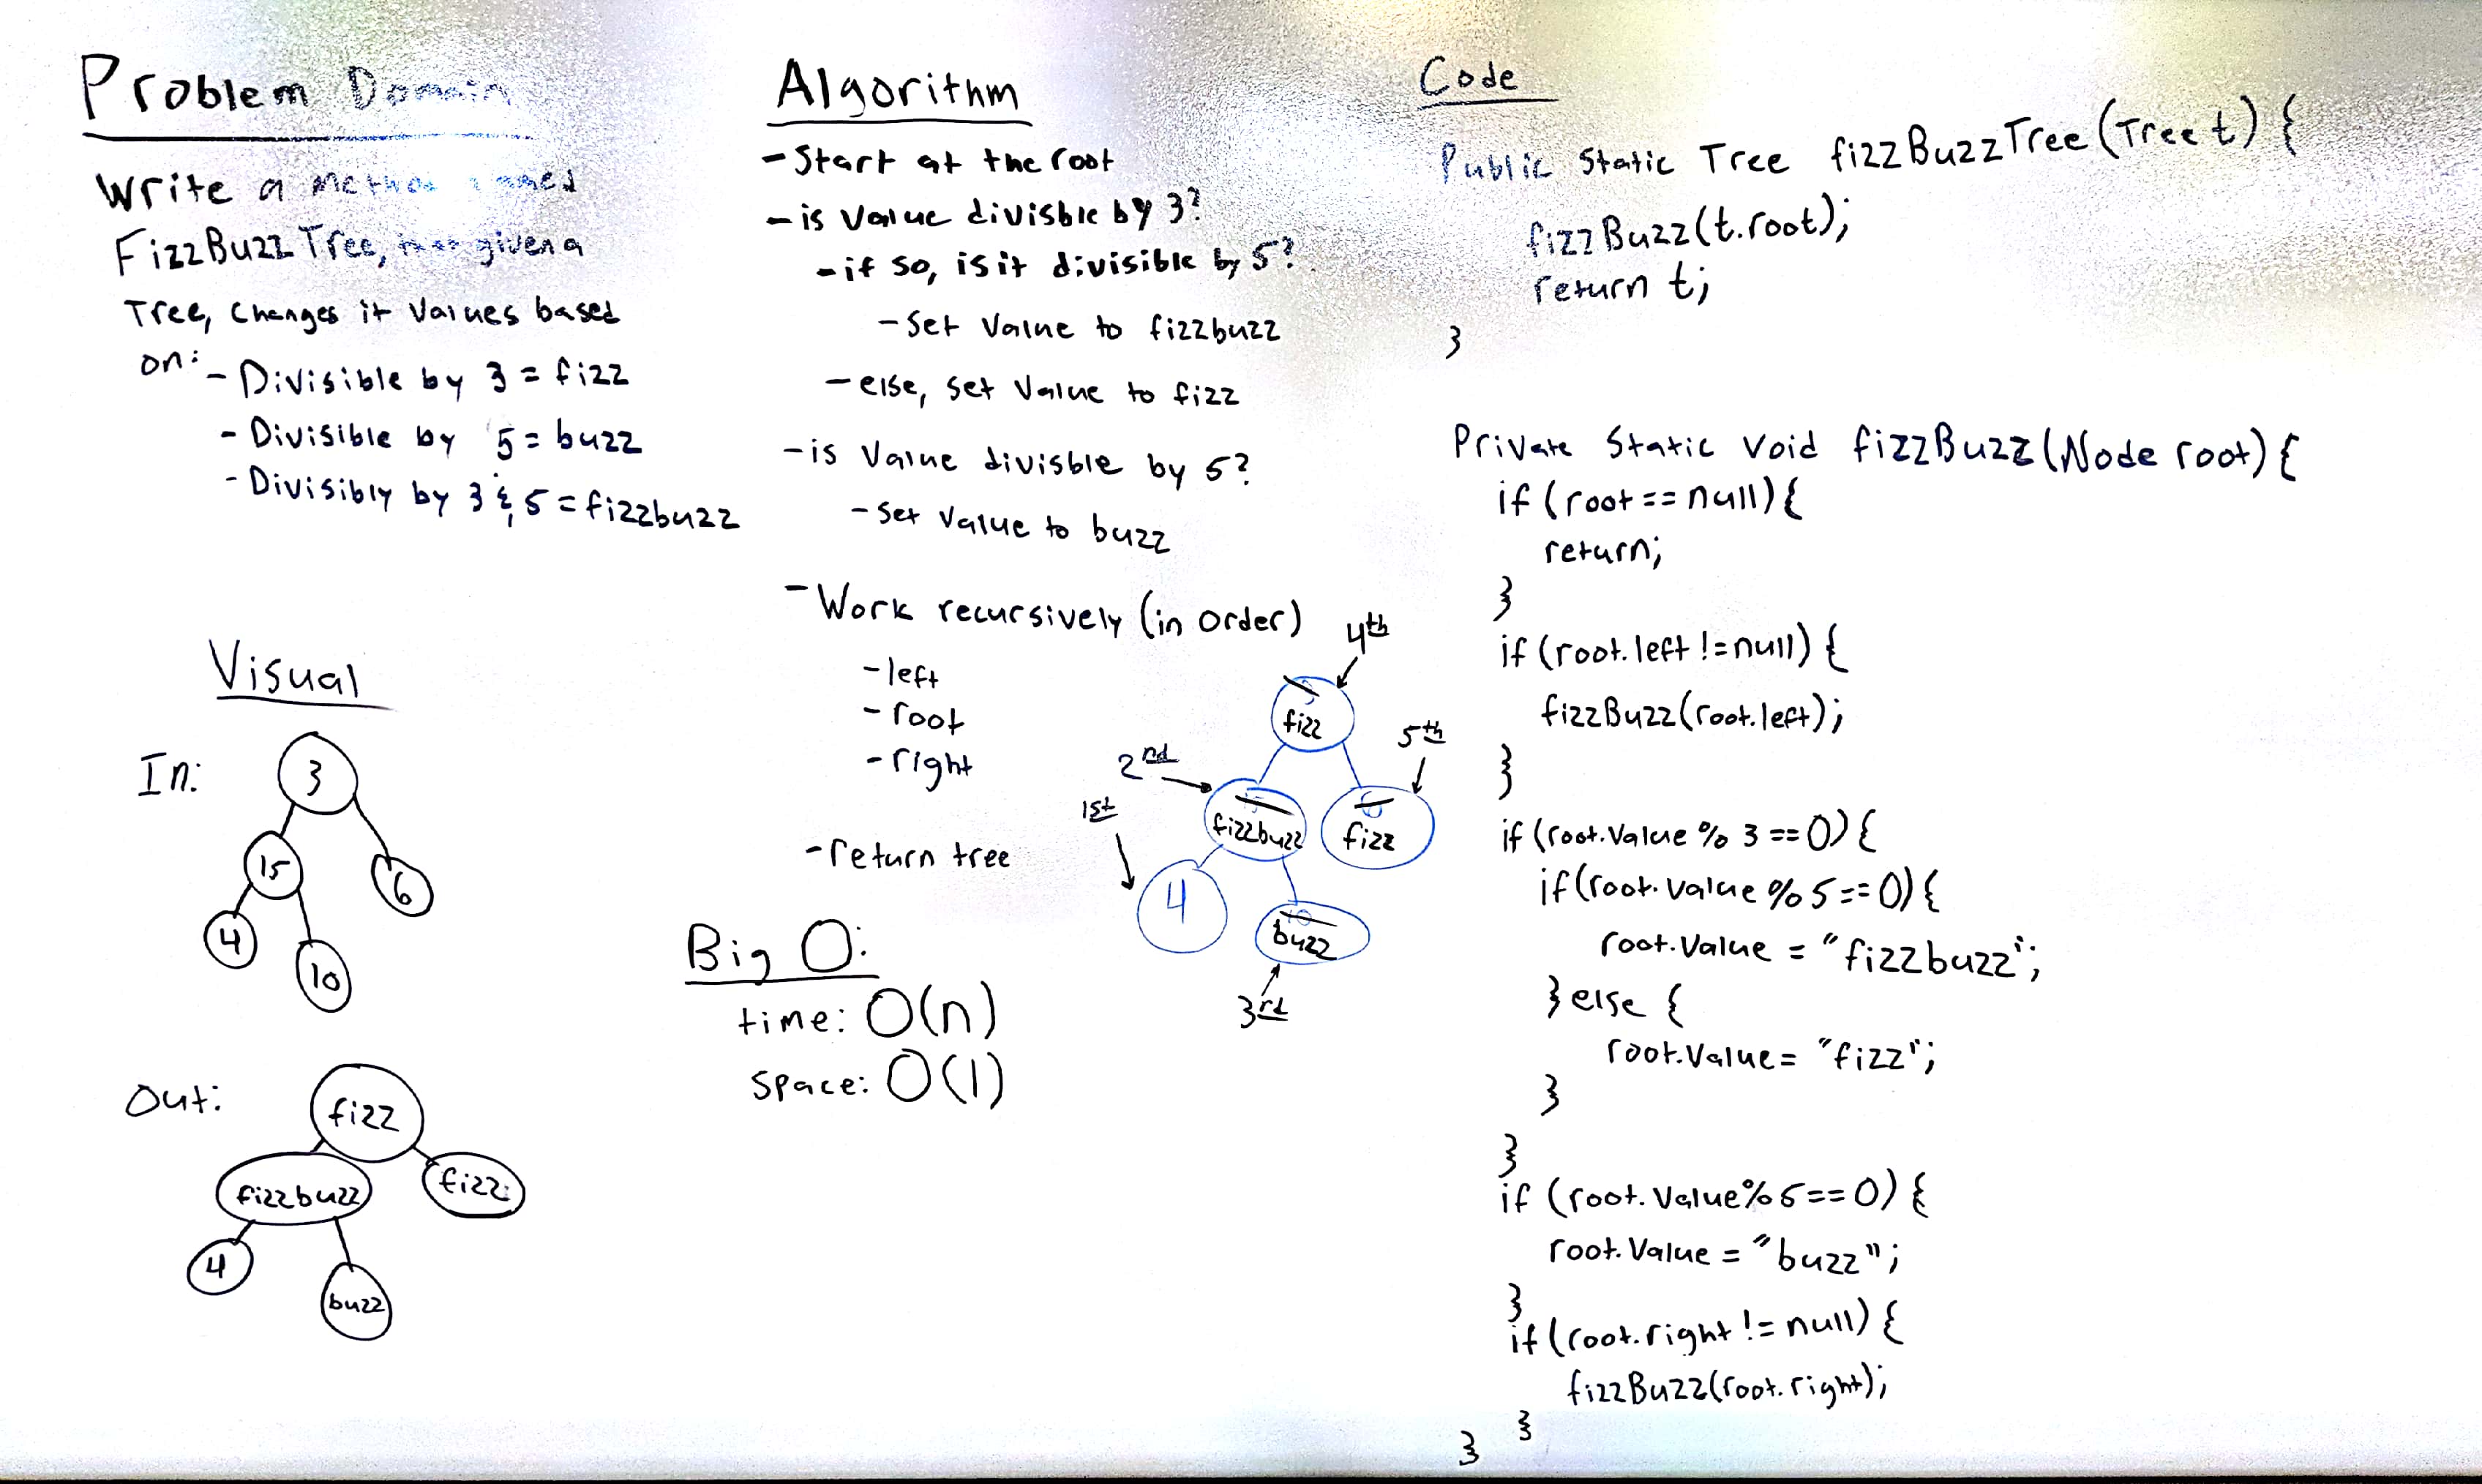 Problem Domain
Write a method named
FizzBuzz Tree, that given a
Tree, changes it values based
on:
- Divisible by 3 = fizz
- Divisible by 5 = buzz
- Divisibly by 3 & 5 = fizzbuzz
Visual
In:
3
15
6
4
10
Out:
fizz
fizzbuzz
fizz
4
buzz
Algorithm
- Start at the root
- is value divisble by 3?
- if so, is it divisible by 5?
- Set value to fizzbuzz
- else, set value to fizz
- is value divisble by 5?
- set value to buzz
- Work recursively (in order)
- left
- root
- right
- return tree
4th
fizz
5th
2nd
fizzbuzz
fizz
1st
4
buzz
3rd
Big O:
time: O(n)
space: O(1)
Code
Public Static Tree fizzBuzzTree(Tree t) {
fizzBuzz(t.root);
return t;
}
Private Static Void fizzBuzz(Node root) {
if (root == null) {
return;
}
if (root.left != null) {
fizzBuzz(root.left);
}
if (root.Value % 3 == 0) {
if (root.value % 5 == 0) {
root.Value = "fizzbuzz";
} else {
root.Value = "fizz";
}
}
if (root.Value % 5 == 0) {
root.Value = "buzz";
}
if (root.right != null) {
fizzBuzz(root.right);
}
}